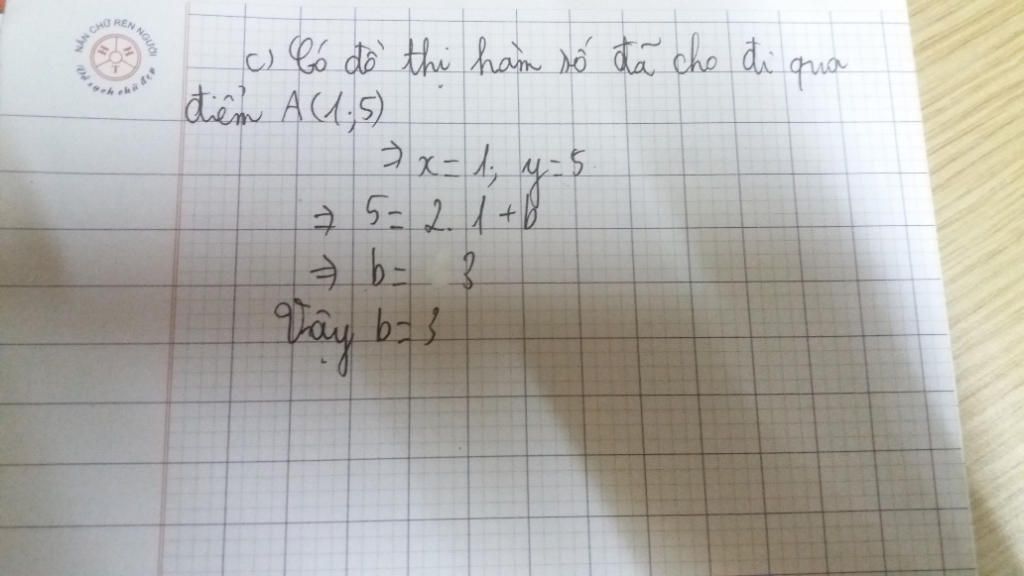 NẮN CHỮ RÈN NGƯỜI
H H T
c) Có đồ thị hàm số đã cho đi qua
điểm A(1;5)
⇒ x = 1; y = 5
⇒ 5 = 2. 1 + b
⇒ b = 3
Vậy b = 3